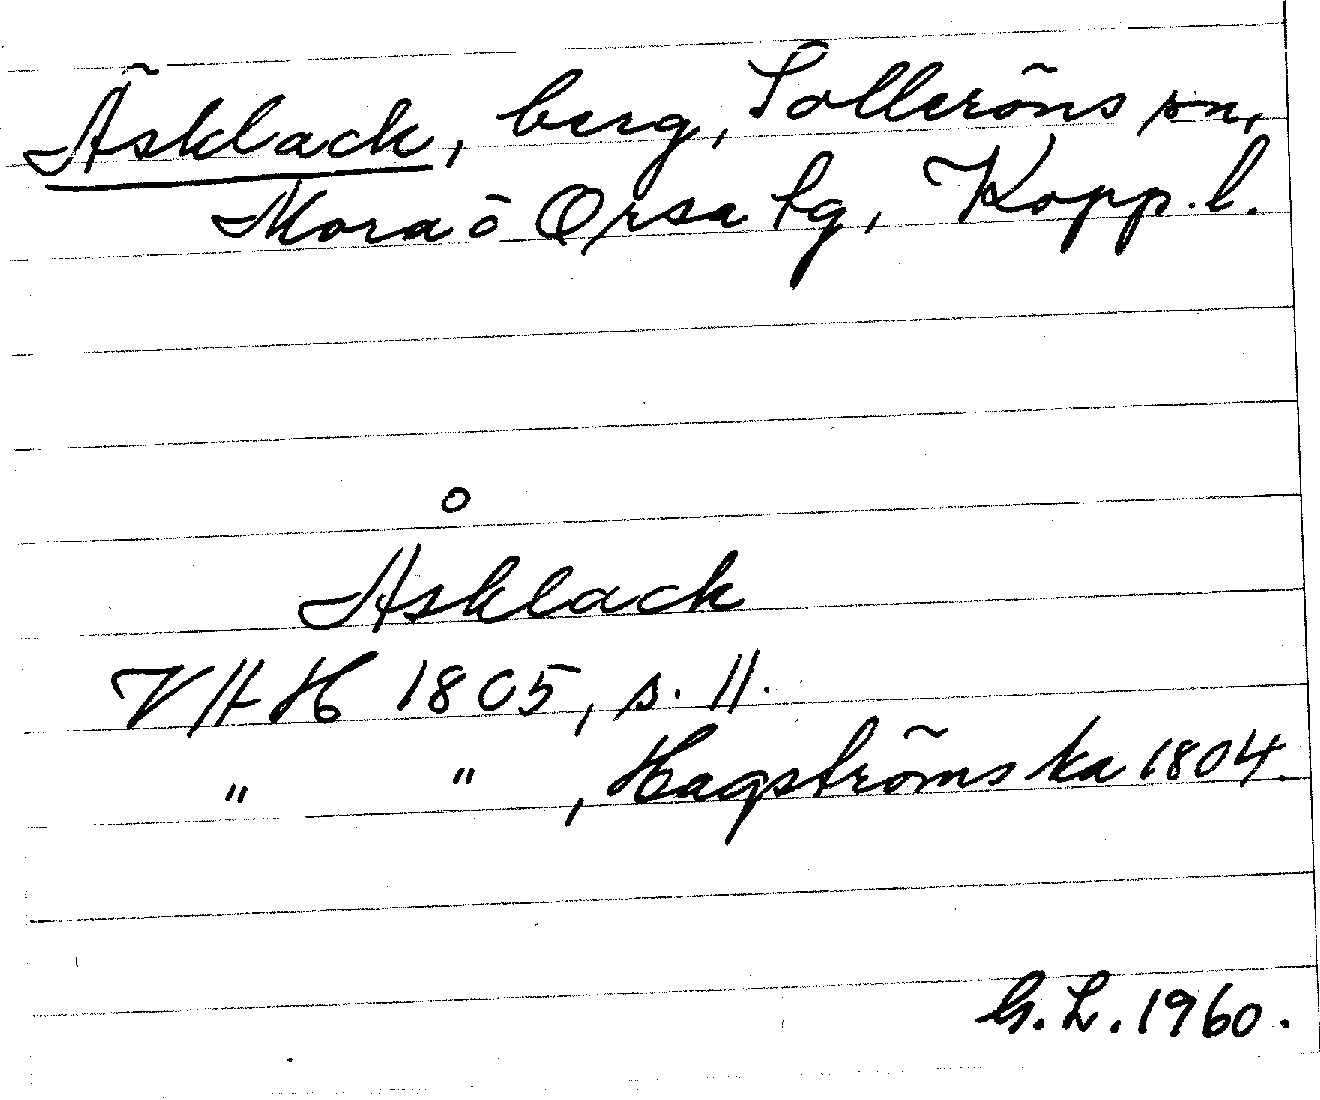 Äsklack, berg, Solleröns sn,
Mora ō Orsa tg, Kopp. l.
Åsklack
VHH 1805, s. 11.
" ", Hagströmska 1804.
G. L. 1960.